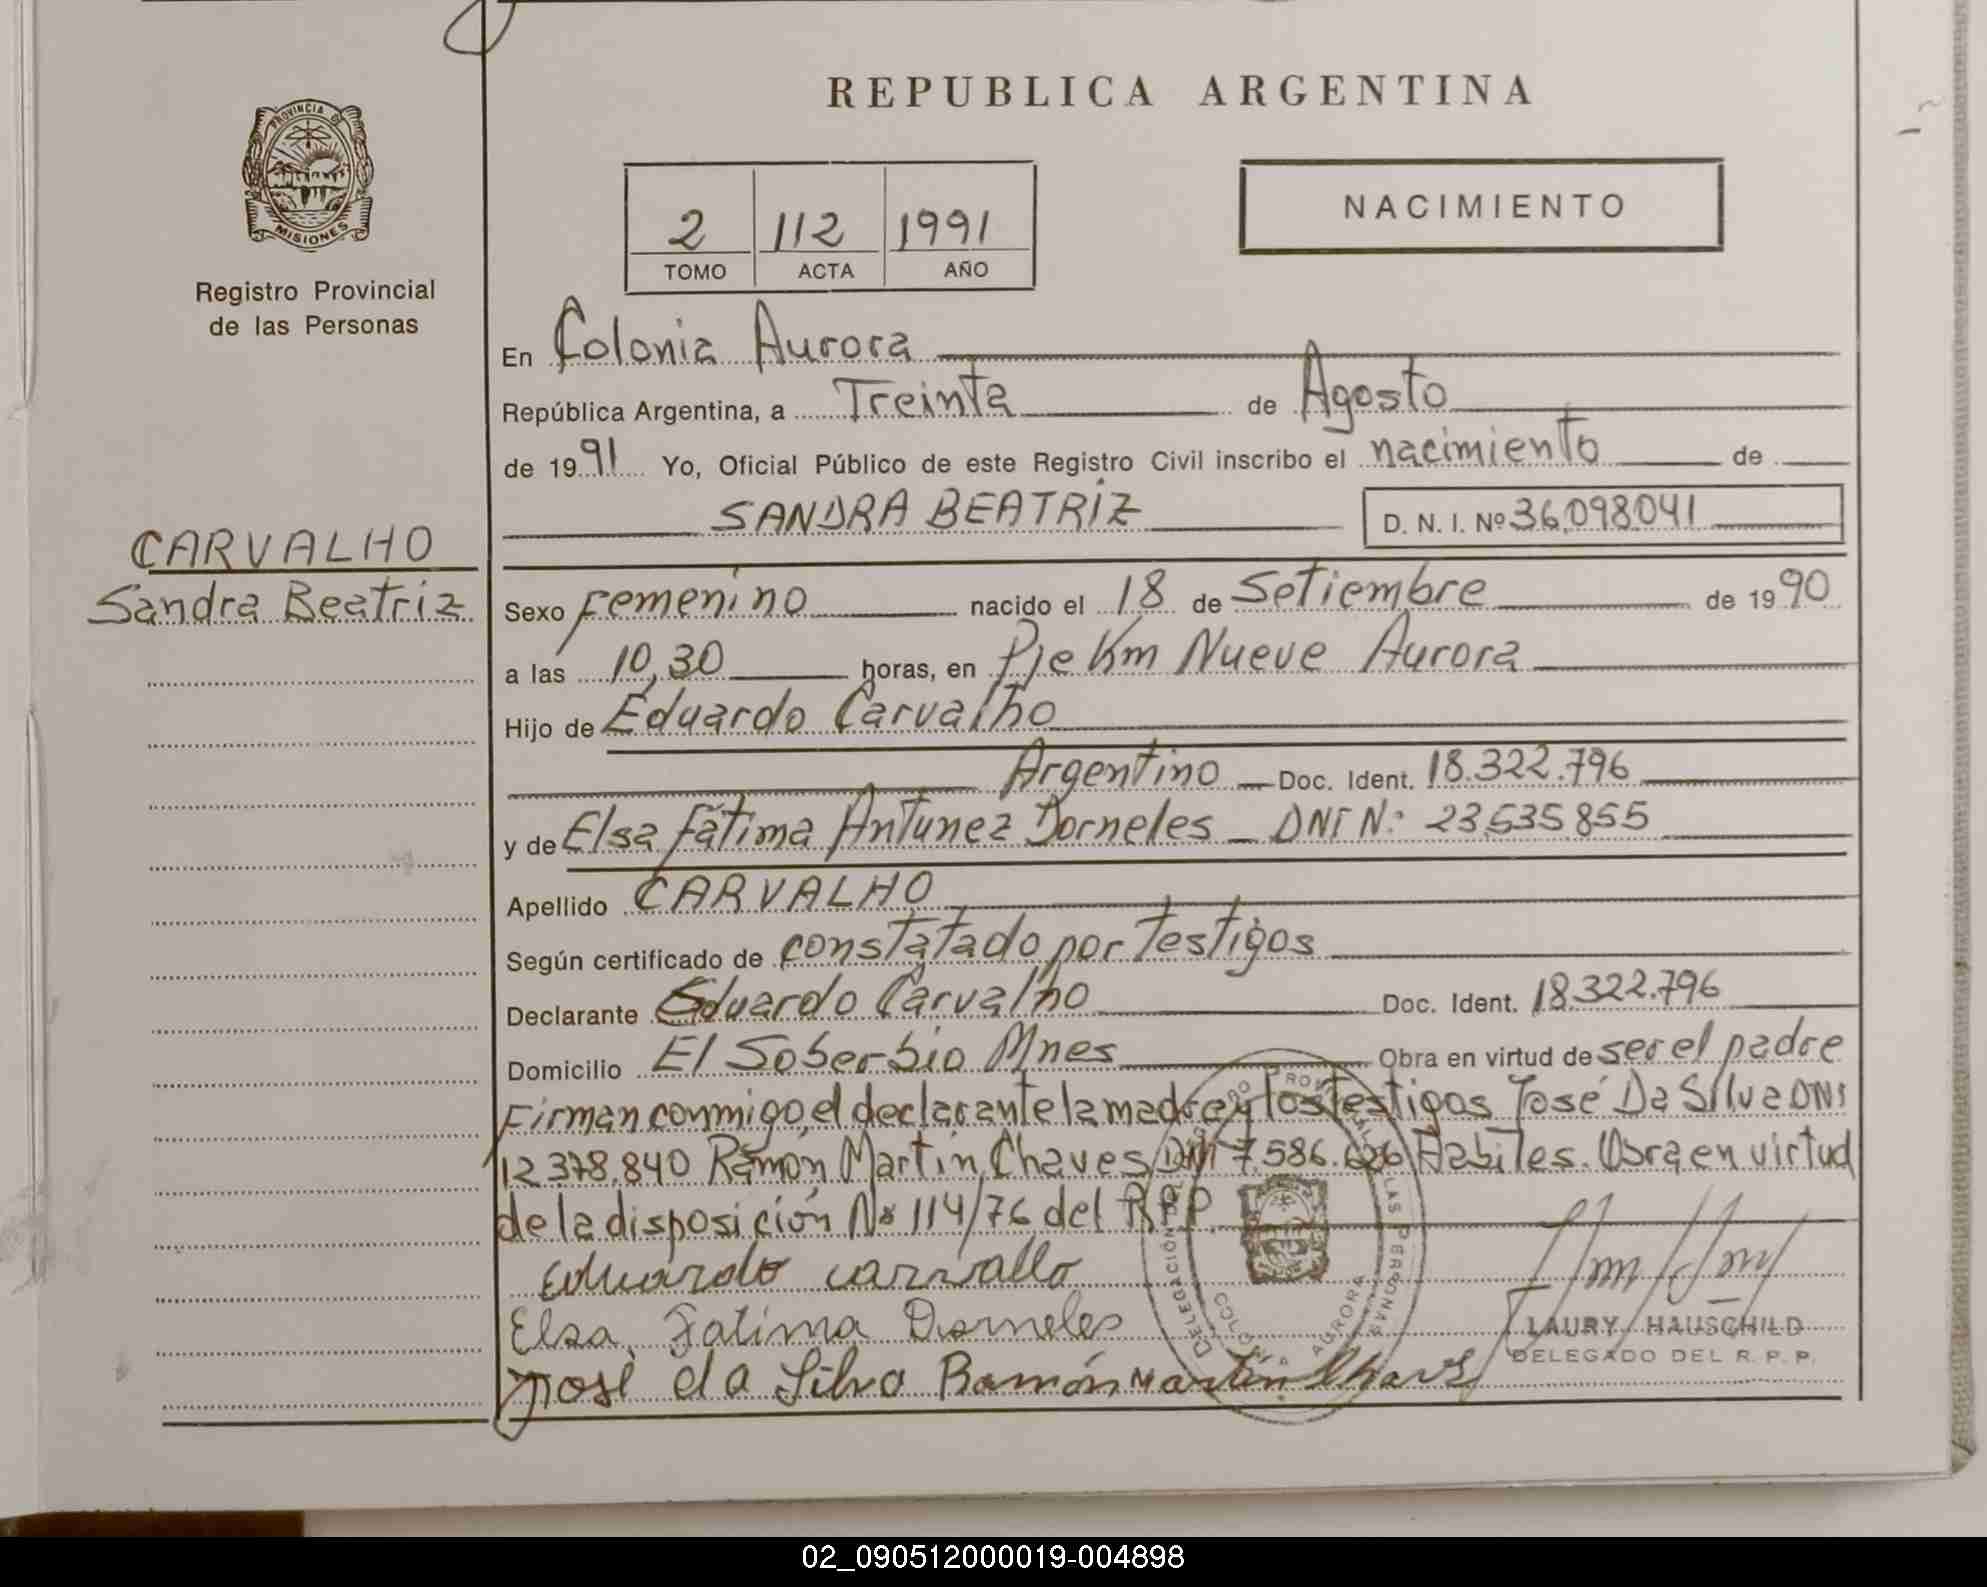 REPUBLICA ARGENTINA
PROVINCIA DE
MISIONES
Registro Provincial
de las Personas
2 112 1991
TOMO ACTA AÑO
NACIMIENTO
En Colonia Aurora
República Argentina, a Treinta de Agosto
de 1991 Yo, Oficial Público de este Registro Civil inscribo el nacimiento de
SANDRA BEATRIZ D. N. I. Nº 36,098041
CARVALHO
Sandra Beatriz
Sexo Femenino nacido el 18 de Setiembre de 1990
a las 10,30 horas, en Pje Km Nueve Aurora
Hijo de Eduardo Carvalho
Argentino Doc. Ident. 18.322.796
y de Elsa Fátima Antunez Dorneles - DNI N: 23,535,855
Apellido CARVALHO
Según certificado de constatado por Testigos
Declarante Eduardo Carvalho Doc. Ident. 18.322.796
Domicilio El Soberbio Mnes Obra en virtud de ser el padre
Firman conmigo, el declarante la madre y los testigos José Da Silva DNI
12.378.840 Ramón Martin Chaves DNI 7.586.626 Habiles. Obra en virtud
de la disposición Nº 114/76 del RPP.
Eduardo carvallo
Elsa Fatima Dorneles
LAURY HAUSCHILD
DELEGADO DEL R. P. P.
José da Silva Ramón Martin Chaves
02_090512000019-004898